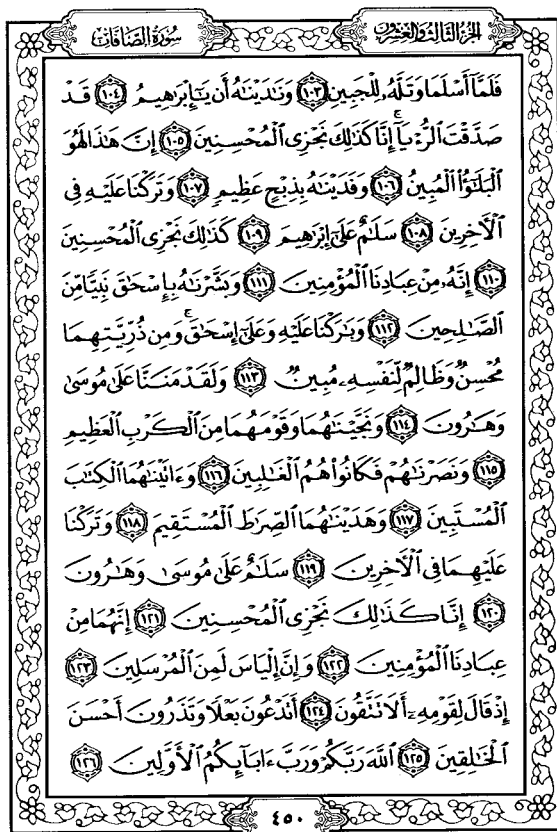 الجزء الثالث والعشرون
سورة الصافات
فَلَمَّا أَسْلَمَا وَتَلَّهُۥ لِلْجَبِينِ ١٠٣ وَنَٰدَيْنَٰهُ أَن يَٰٓإِبْرَٰهِيمُ ١٠٤ قَدْ
صَدَّقْتَ ٱلرُّءْيَآ ۚ إِنَّا كَذَٰلِكَ نَجْزِى ٱلْمُحْسِنِينَ ١٠٥ إِنَّ هَٰذَا لَهُوَ
ٱلْبَلَٰٓؤُا۟ ٱلْمُبِينُ ١٠٦ وَفَدَيْنَٰهُ بِذِبْحٍ عَظِيمٍ ١٠٧ وَتَرَكْنَا عَلَيْهِ فِى
ٱلْءَاخِرِينَ ١٠٨ سَلَٰمٌ عَلَىٰٓ إِبْرَٰهِيمَ ١٠٩ كَذَٰلِكَ نَجْزِى ٱلْمُحْسِنِينَ
١١٠ إِنَّهُۥ مِنْ عِبَادِنَا ٱلْمُؤْمِنِينَ ١١١ وَبَشَّرْنَٰهُ بِإِسْحَٰقَ نَبِيًّا مِّنَ
ٱلصَّٰلِحِينَ ١١٢ وَبَٰرَكْنَا عَلَيْهِ وَعَلَىٰٓ إِسْحَٰقَ ۚ وَمِن ذُرِّيَّتِهِمَا
مُحْسِنٌ وَظَالِمٌ لِّنَفْسِهِۦ مُبِينٌ ١١٣ وَلَقَدْ مَنَنَّا عَلَىٰ مُوسَىٰ
وَهَٰرُونَ ١١٤ وَنَجَّيْنَٰهُمَا وَقَوْمَهُمَا مِنَ ٱلْكَرْبِ ٱلْعَظِيمِ
١١٥ وَنَصَرْنَٰهُمْ فَكَانُوا۟ هُمُ ٱلْغَٰلِبِينَ ١١٦ وَءَاتَيْنَٰهُمَا ٱلْكِتَٰبَ
ٱلْمُسْتَبِينَ ١١٧ وَهَدَيْنَٰهُمَا ٱلصِّرَٰطَ ٱلْمُسْتَقِيمَ ١١٨ وَتَرَكْنَا
عَلَيْهِمَا فِى ٱلْءَاخِرِينَ ١١٩ سَلَٰمٌ عَلَىٰ مُوسَىٰ وَهَٰرُونَ
١٢٠ إِنَّا كَذَٰلِكَ نَجْزِى ٱلْمُحْسِنِينَ ١٢١ إِنَّهُمَا مِنْ
عِبَادِنَا ٱلْمُؤْمِنِينَ ١٢٢ وَإِنَّ إِلْيَاسَ لَمِنَ ٱلْمُرْسَلِينَ ١٢٣
إِذْ قَالَ لِقَوْمِهِۦٓ أَلَا تَتَّقُونَ ١٢٤ أَتَدْعُونَ بَعْلًا وَتَذَرُونَ أَحْسَنَ
ٱلْخَٰلِقِينَ ١٢٥ ٱللَّهَ رَبَّكُمْ وَرَبَّ ءَابَآئِكُمُ ٱلْأَوَّلِينَ ١٢٦
٤٥٠